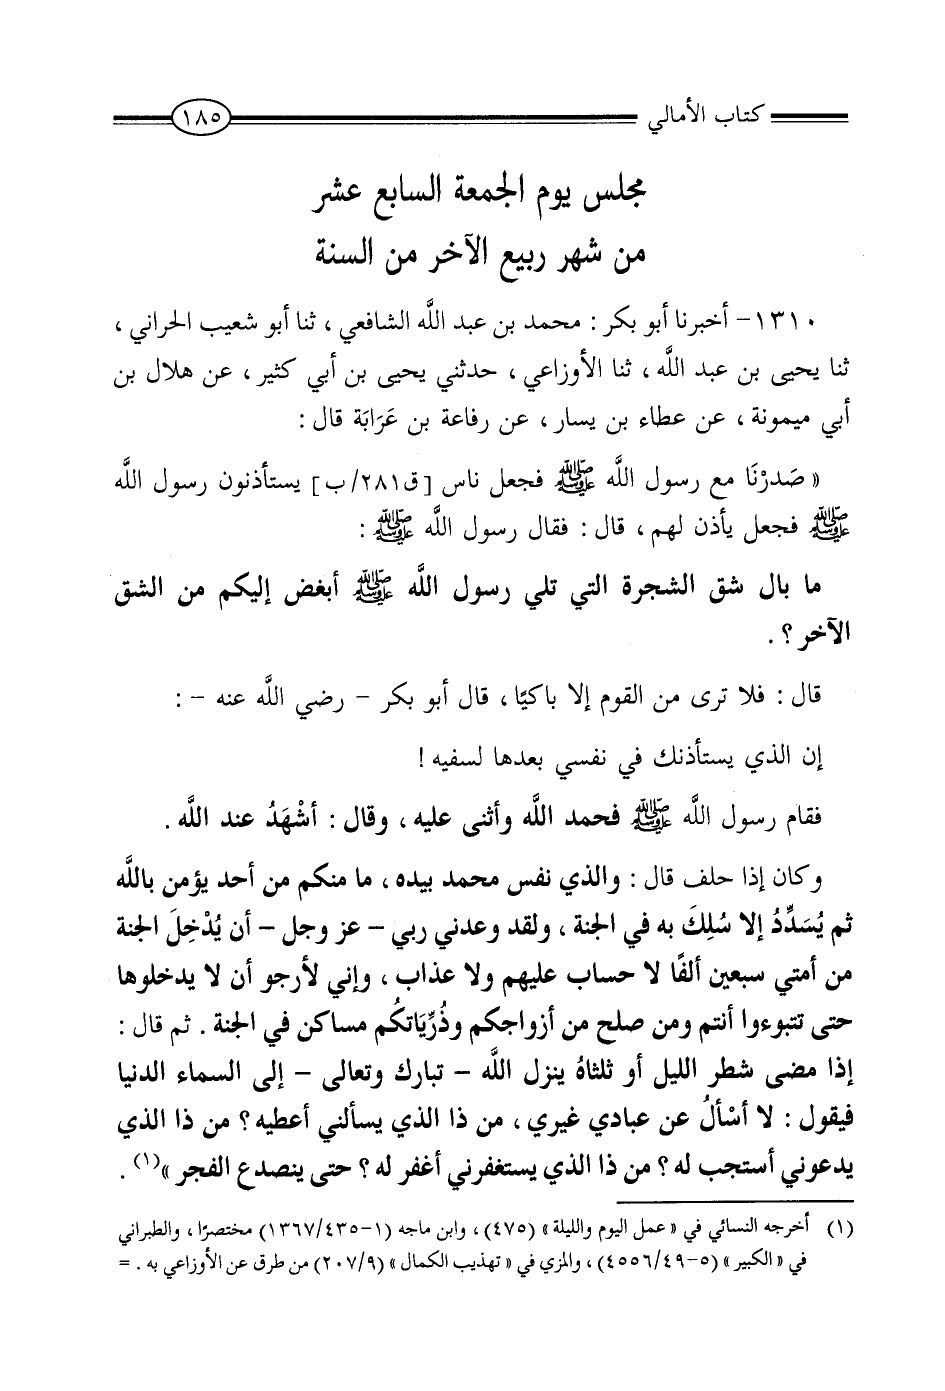 كتاب الأمالي ١٨٥
مجلس يوم الجمعة السابع عشر
من شهر ربيع الآخر من السنة
١٣١٠- أخبرنا أبو بكر : محمد بن عبد اللَّه الشافعي ، ثنا أبو شعيب الحراني ،
ثنا يحيى بن عبد اللَّه ، ثنا الأوزاعي ، حدثني يحيى بن أبي كثير ، عن هلال بن
أبي ميمونة ، عن عطاء بن يسار ، عن رفاعة بن عَرَابَة قال :
« صَدرْنَا مع رسول اللَّه ﷺ فجعل ناس [ق٢٨١/ب] يستأذنون رسول اللَّه
ﷺ فجعل يأذن لهم ، قال : فقال رسول اللَّه ﷺ :
ما بال شق الشجرة التي تلي رسول اللَّه ﷺ أبغض إليكم من الشق
الآخر ؟ .
قال : فلا ترى من القوم إلا باكيًا ، قال أبو بكر - رضي اللَّه عنه - :
إن الذي يستأذنك في نفسي بعدها لسفيه !
فقام رسول اللَّه ﷺ فحمد اللَّه وأثنى عليه ، وقال : أشْهَدُ عند اللَّه .
وكان إذا حلف قال : والذي نفس محمد بيده ، ما منكم من أحد يؤمن باللَّه
ثم يُسَدِّدُ إلا سُلِكَ به في الجنة ، ولقد وعدني ربي - عز وجل - أن يُدْخِلَ الجنة
من أمتي سبعين ألفًا لا حساب عليهم ولا عذاب ، وإني لأرجو أن لا يدخلوها
حتى تتبوءوا أنتم ومن صلح من أزواجكم وذُرِّيَاتكُم مساكن في الجنة . ثم قال :
إذا مضى شطر الليل أو ثلثاهُ ينزل اللَّه - تبارك وتعالى - إلى السماء الدنيا
فيقول : لا أسْألُ عن عبادي غيري ، من ذا الذي يسألني أعطيه ؟ من ذا الذي
يدعوني أستجب له ؟ من ذا الذي يستغفرني أغفر له ؟ حتى ينصدع الفجر »(١) .
(١) أخرجه النسائي في « عمل اليوم والليلة » (٤٧٥) ، وابن ماجه (١-١٣٦٧/٤٣٥) مختصرًا ، والطبراني
في « الكبير » (٥-٤٥٥٦/٤٩) ، والمزي في « تهذيب الكمال » (٢٠٧/٩) من طرق عن الأوزاعي به . =